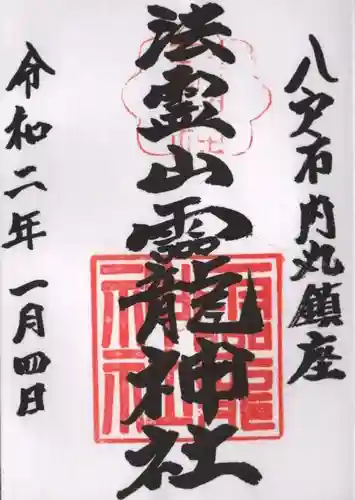 八戸市内丸鎮座
法霊山龗神社
令和二年 一月四日